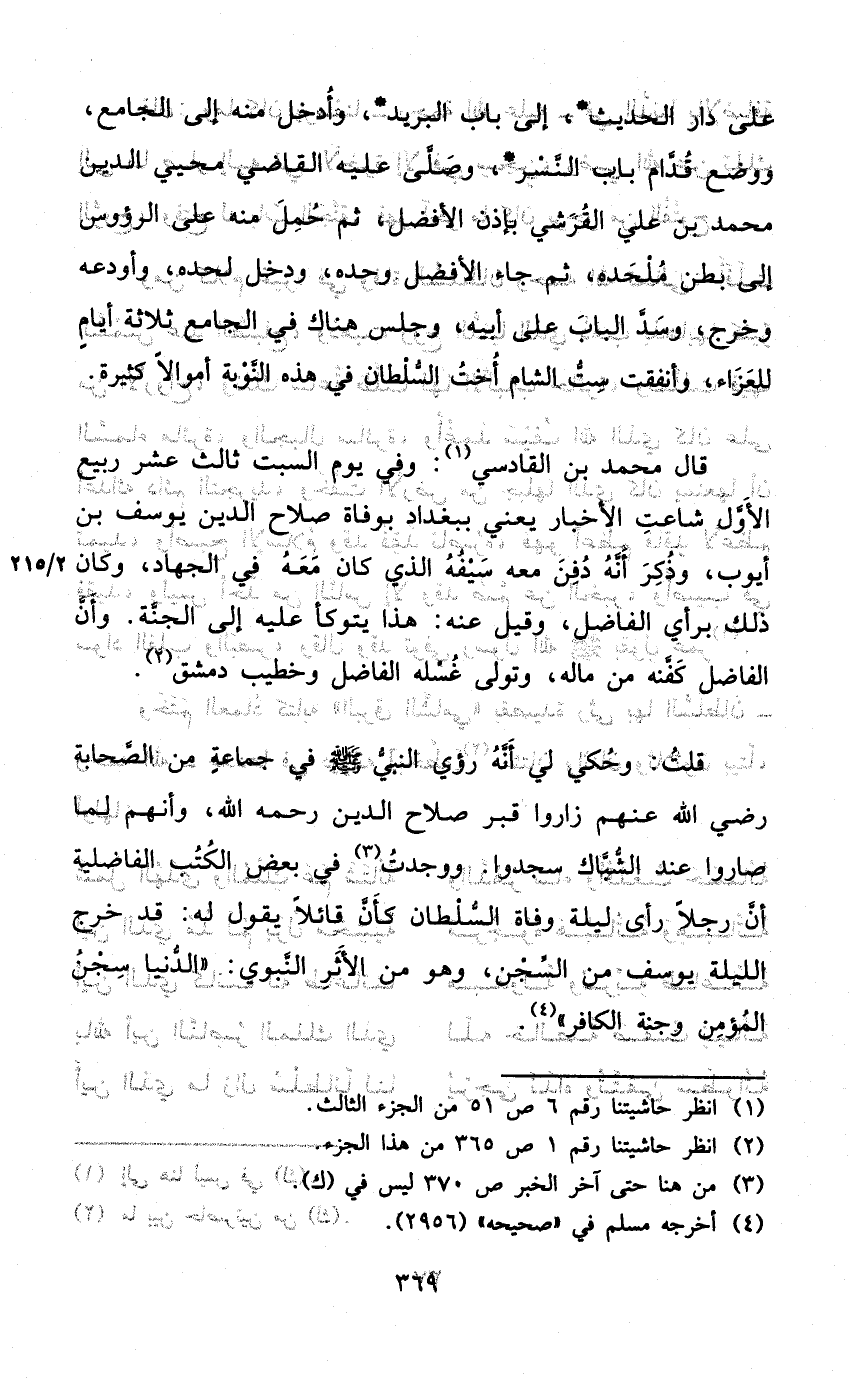 على دار الحديث*، إلى باب البريد*، وأُدخل منه إلى الجامع،
ووضع قُدَّام باب النَّسْر*، وصَلَّى عليه القاضي محيي الدين
محمد بن علي القُرَشي بإذن الأفضل، ثم حُمِلَ منه على الرؤوس
إلى بطن مُلْحَده، ثم جاء الأفضل وحده، ودخل لحده، وأودعه
وخرج، وسَدَّ البابَ على أبيه، وجلس هناك في الجامع ثلاثة أيامٍ
للعَزَاء، وأنفقت سِتُّ الشام أُختُ السُّلْطان في هذه النَّوْبة أموالاً كثيرة.
قال محمد بن القادسي(١): وفي يوم السبت ثالث عشر ربيع
الأَوَّل شاعتِ الأخبار يعني ببغداد بوفاة صلاح الدين يوسف بن
أيوب، وذُكِرَ أَنَّهُ دُفِنَ معه سَيْفُهُ الذي كان مَعَهُ في الجهاد، وكان ٢١٥/٢
ذلك برأي الفاضل، وقيل عنه: هذا يتوكأ عليه إلى الجنَّة. وأنَّ
الفاضل كَفَّنه من ماله، وتولى غُسْله الفاضل وخطيب دمشق(٢).
قلتُ: وحُكي لي أَنَّهُ رؤي النبيُّ ﷺ في جماعةٍ من الصَّحابة
رضي الله عنهم زاروا قبر صلاح الدين رحمه الله، وأنهم لما
صاروا عند الشُّبَّاك سجدوا. ووجدتُ(٣) في بعض الكُتُب الفاضلية
أنَّ رجلاً رأى ليلة وفاة السُّلْطان كأَنَّ قائلاً يقول له: قد خرج
الليلة يوسف من السِّجْن، وهو من الأَثَرِ النَّبوي: «الدُّنيا سِجْنُ
المُؤمِن وجنة الكافر»(٤).
(١) انظر حاشيتنا رقم ٦ ص ٥١ من الجزء الثالث.
(٢) انظر حاشيتنا رقم ١ ص ٣٦٥ من هذا الجزء.
(٣) من هنا حتى آخر الخبر ص ٣٧٠ ليس في (ك).
(٤) أخرجه مسلم في «صحيحه» (٢٩٥٦).
٣٦٩